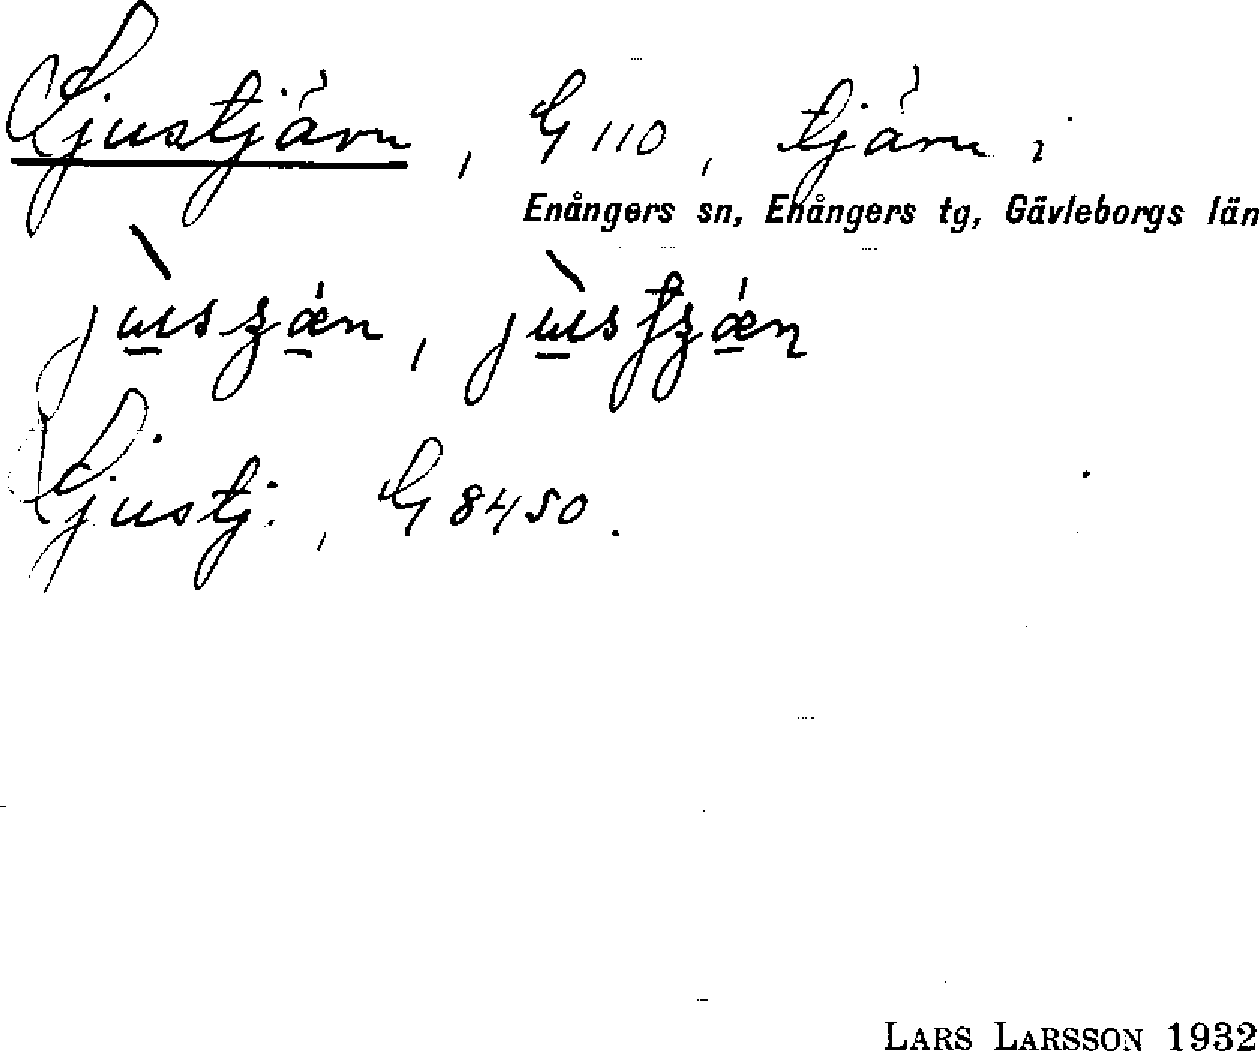 Ljustjärn, G 110, tjärn i
Enångers sn, Enångers tg, Gävleborgs län
Ljustj., G 8450.
LARS LARSSON 1932